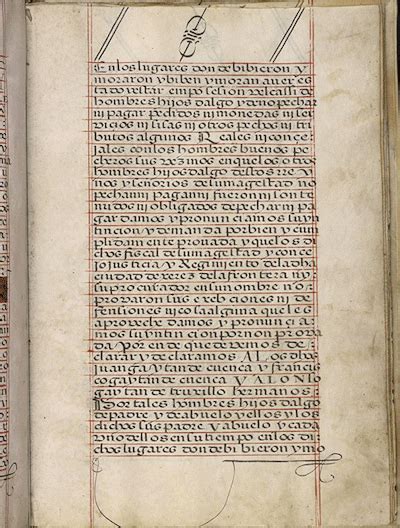 Enloslugares dondebibieron y
moraron ybiben ymoran averes
tado yestar empo sesion velcassi de
hombres hijos dalgo ydeno pechar
ni pagar pedidos ni monedas ni ser
bicios ni sisas ni otros pechos ni tri
butos algunos Reales niconce
jales conlos hombres buenos pe
cheros sus vezinos enquelos otros
hombres hijos dalgo destos rey
nos y señorios desumagestad no
pechan ni pagan ni fueron ni son te
nudos ni obligados depechar ni pa
gar damos ypronunciamos suyn
tincion ydemanda porbien y cum
plidamente provada yquelos di
chos fiscal desumagestad yconce
jo justicia y Regimiento deladha
ciudad de xerez delafrontera nysu
su procurador ensunombre no
probaron sus exebciones ni de
fensiones ni cosa alguna queles
aproveche damos y pronuncia
mos suyntincion pornon proba
da Porende quedevemos de
clarar ydeclaramos ALos dhos
juan gaytan de cuenca y francis
co gaytan de cuenca Y ALONSO
gaytan de truxillo hermanos
Por tales hombres hijos dalgo
depadre ydeabuelo yellos ylos
dichos sus padre yabuelo ycada
uno dellos ensutiempo enlos di
chos lugares dondebibieron ymo